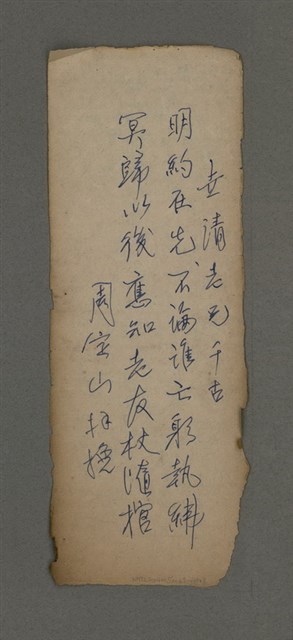 世清老兄千古
明約在先不論誰亡躬執紼
冥歸以後應知老友杖隨棺
周定山拜挽